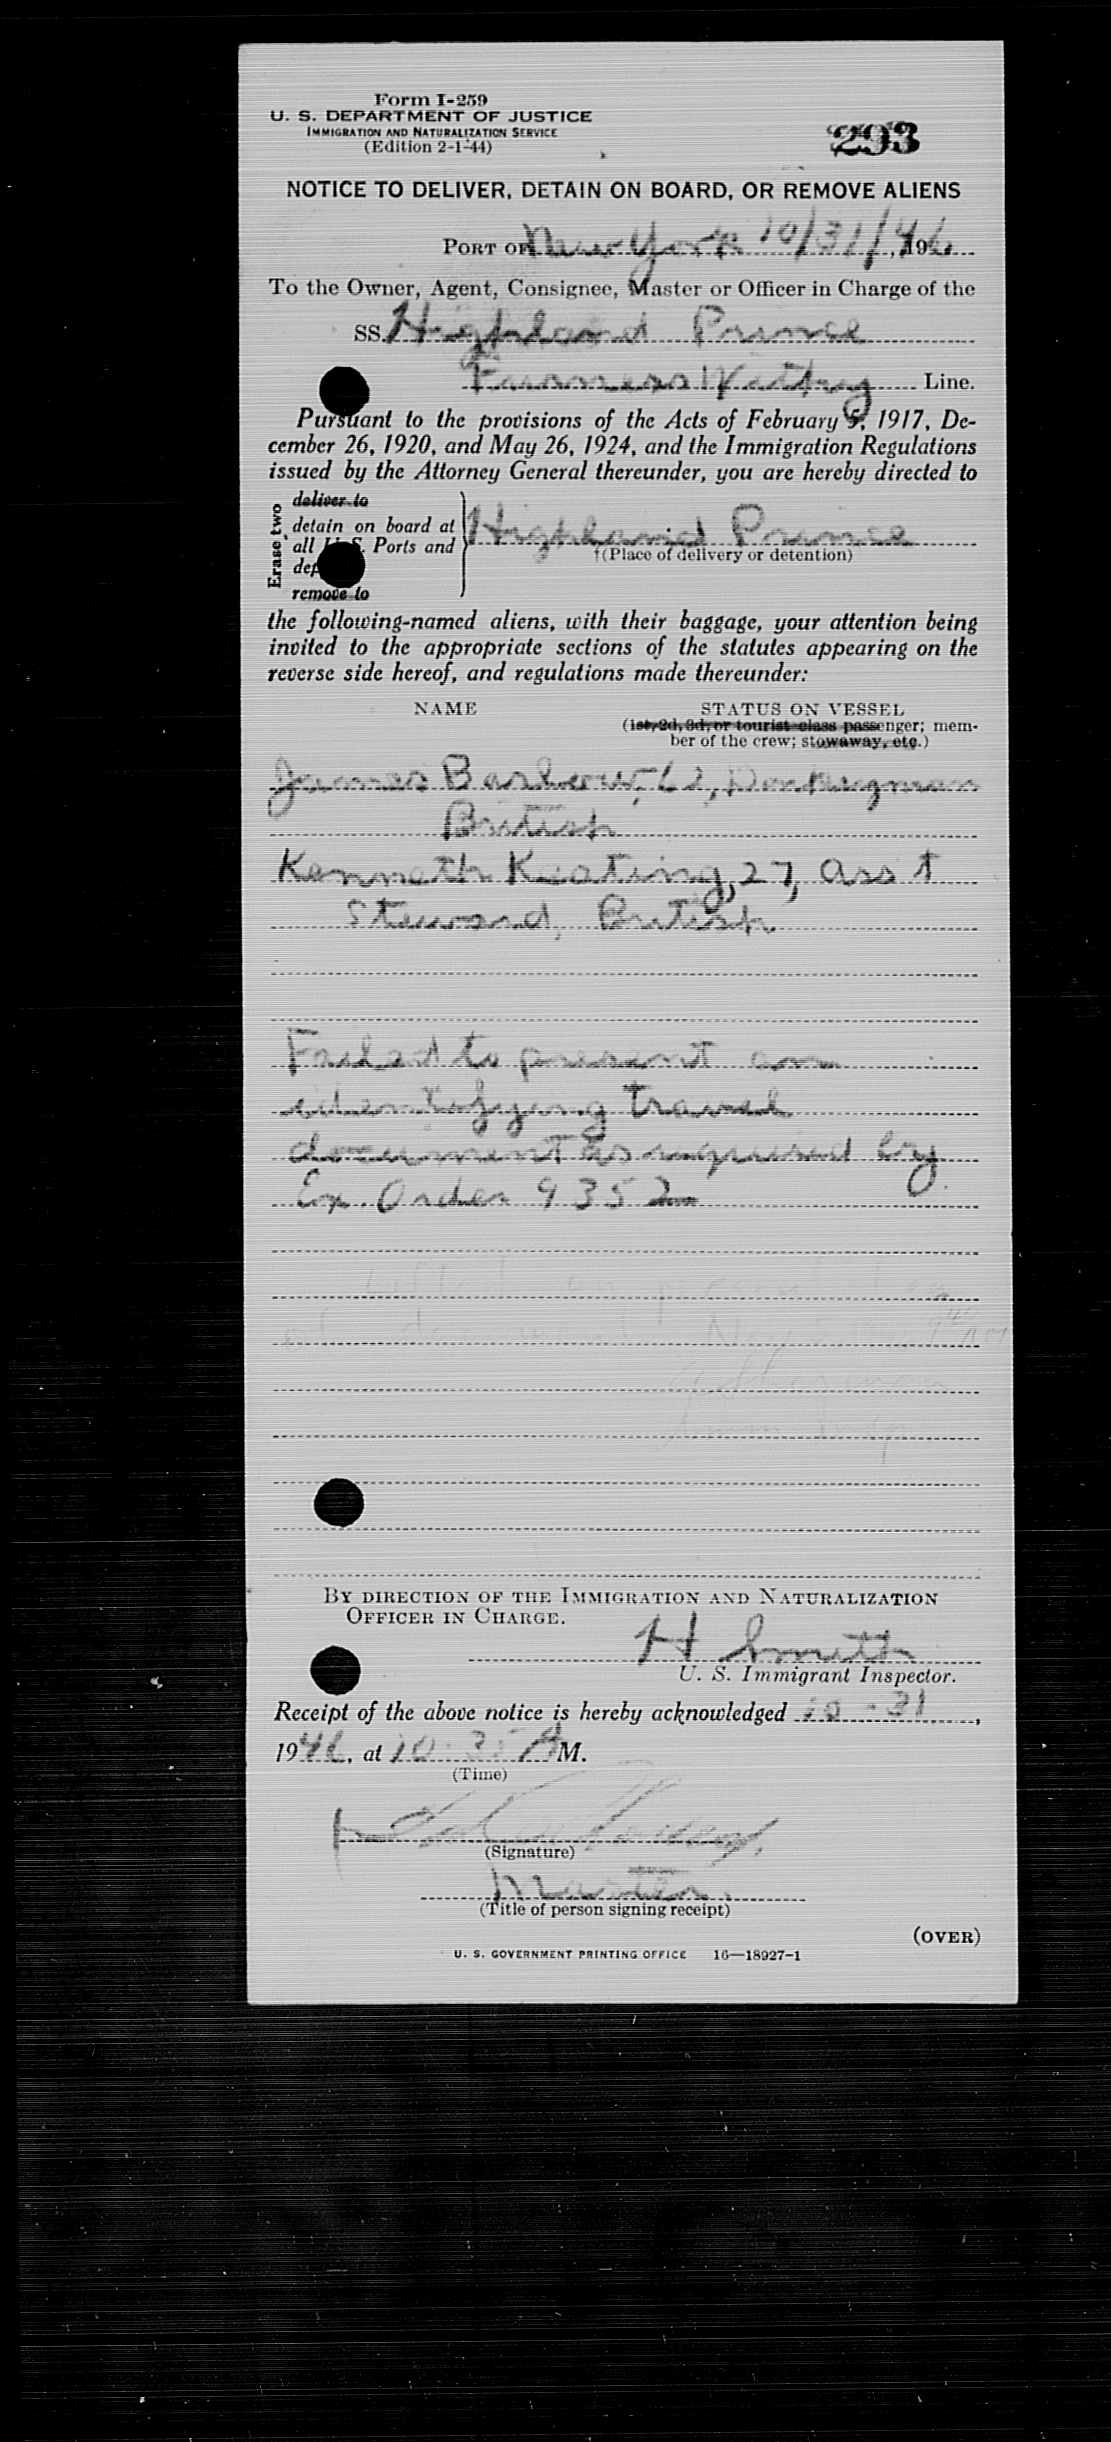 Form I-259
U. S. DEPARTMENT OF JUSTICE
IMMIGRATION AND NATURALIZATION SERVICE
(Edition 2-1-44)
293
NOTICE TO DELIVER, DETAIN ON BOARD, OR REMOVE ALIENS
PORT OF New York 10/31/46, 1946
To the Owner, Agent, Consignee, Master or Officer in Charge of the
SS. Highland Prince
Furness Withy Line.
Pursuant to the provisions of the Acts of February 5, 1917, De-
cember 26, 1920, and May 26, 1924, and the Immigration Regulations
issued by the Attorney General thereunder, you are hereby directed to
Erase two
deliver to
detain on board at
all U.S. Ports and
remove to
Highland Prince
†(Place of delivery or detention)
the following-named aliens, with their baggage, your attention being
invited to the appropriate sections of the statutes appearing on the
reverse side hereof, and regulations made thereunder:
NAME
STATUS ON VESSEL
(1st, 2d, 3d, or tourist class passenger; mem-
ber of the crew; stowaway, etc.)
James Barbour, 62, Donkeyman
British
Kenneth Keating, 27, Ass t
Steward, British
Failed to present an
identifying travel
document as required by
Ex. Order 9352
BY DIRECTION OF THE IMMIGRATION AND NATURALIZATION
OFFICER IN CHARGE.
H Smith
U. S. Immigrant Inspector.
Receipt of the above notice is hereby acknowledged 10-31,
1946, at 10.35 A M.
(Time)
(Signature)
Master.
(Title of person signing receipt)
(OVER)
U. S. GOVERNMENT PRINTING OFFICE 16—18927-1